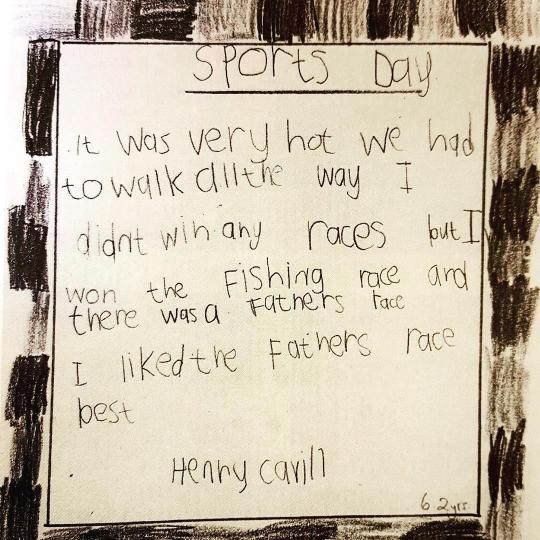 Sports Day
it was very hot we had
to walk all the way I
didnt win any races but I
won the Fishing race and
there was a Fathers race
I liked the Fathers race
best
Henry Cavill
6 2yrs